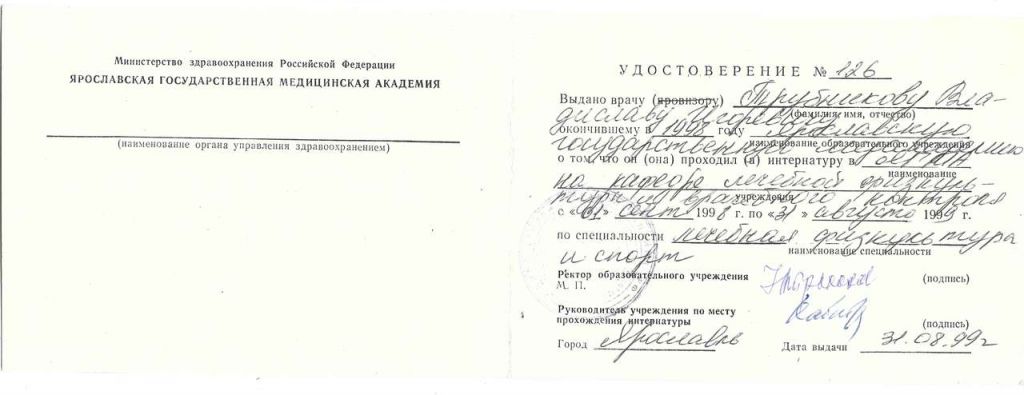 Министерство здравоохранения Российской Федерации
ЯРОСЛАВСКАЯ ГОСУДАРСТВЕННАЯ МЕДИЦИНСКАЯ АКАДЕМИЯ
(наименование органа управления здравоохранением)
УДОСТОВЕРЕНИЕ № 126
Выдано врачу (провизору) Трубникову Вла-
диславу Игоревичу
(фамилия, имя, отчество)
окончившему в 1998 году Ярославскую
государственную академию
наименование образовательного учреждения
о том, что он (она) проходил (а) интернатуру в
наименование
на кафедре лечебной физкуль-
туры и врачебного контроля
учреждения
с «01» сент 1998 г. по «31» августа 1999 г.
по специальности лечебная физкультура
наименование специальности
и спорт
Ректор образовательного учреждения
М. П.
(подпись)
Руководитель учреждения по месту
прохождения интернатуры
(подпись)
Город Ярославль
Дата выдачи 31.08.99г